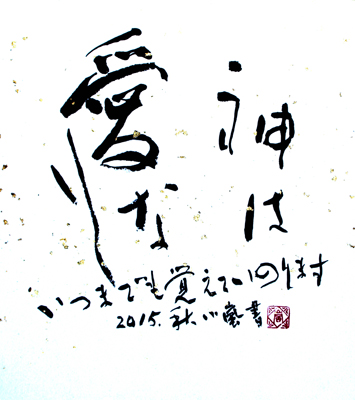 神は
愛なり
いつまでも覚えていのります
2015.秋 書